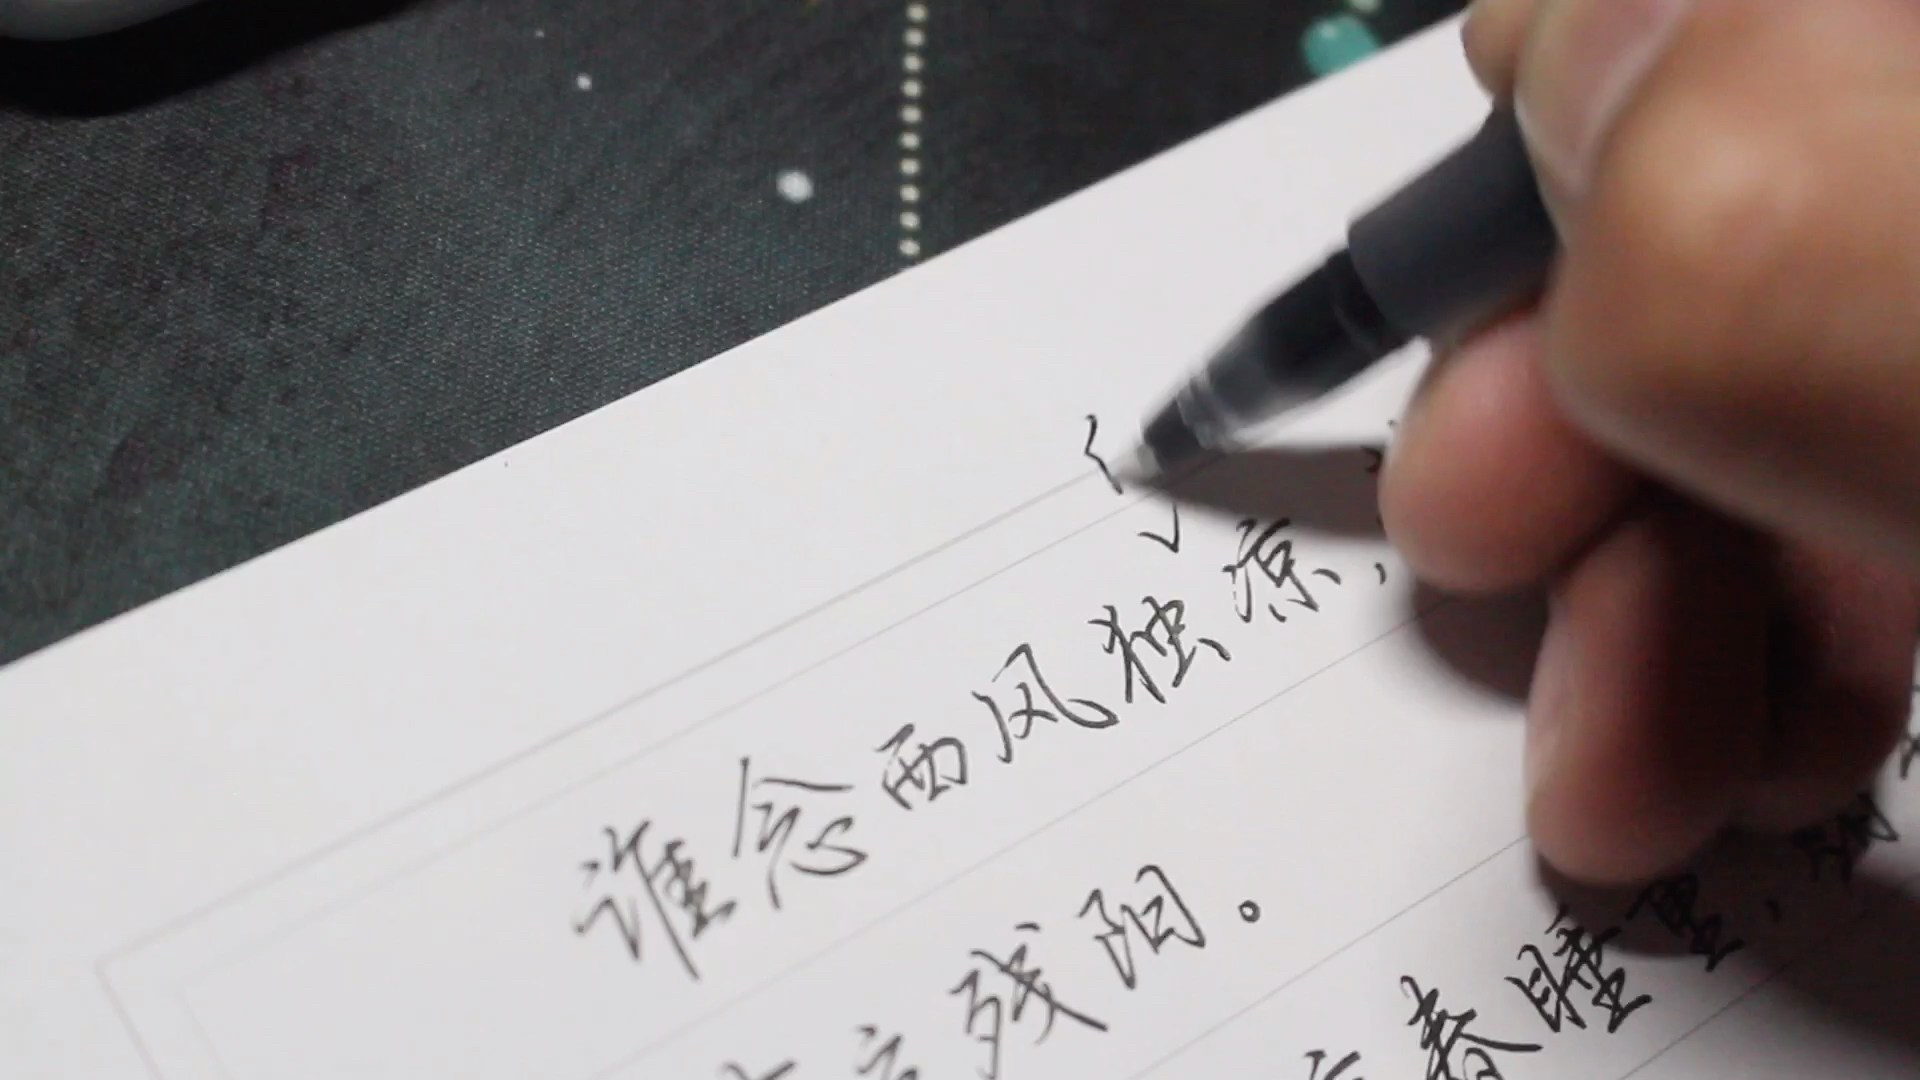 谁念西风独凉,
残阳。
春睡里,